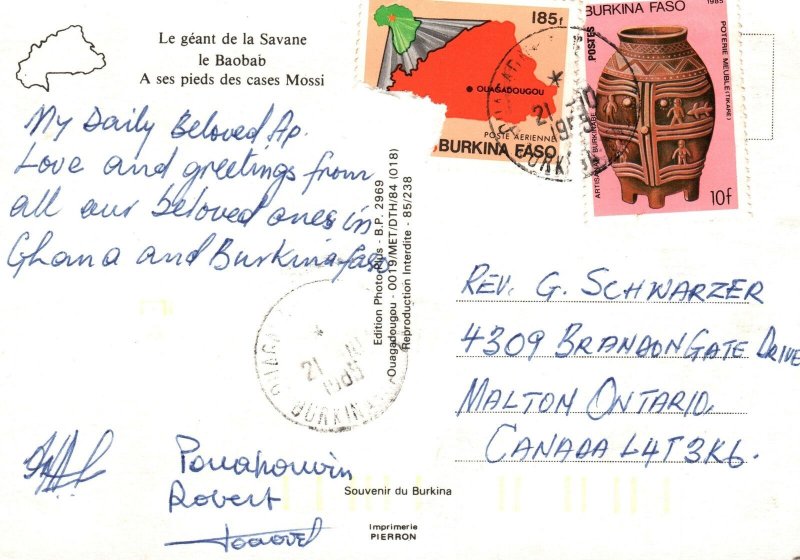 Le géant de la Savane
le Baobab
A ses pieds des cases Mossi
My Daily Beloved Ap.
Love and greetings from
all our beloved ones in
Ghana and Burkina faso
Robert
185f
OUAGADOUGOU
POSTE AERIENNE
BURKINA FASO
21 -10
BURKINA FASO
1985
POSTES
POTERIE MEUBLE (TIKARE)
ARTISANAT BURKINABE
10f
Edition Photo Plus - B.P. 2969
Ouagadougou - 0019/MET/DTH/84 (018)
Reproduction Interdite - 85/238
REV. G. SCHWARZER
4309 BRANDON GATE DRIVE
MALTON ONTARIO,
CANADA L4T3K6.
21
BURKINA
Souvenir du Burkina
Imprimerie
PIERRON